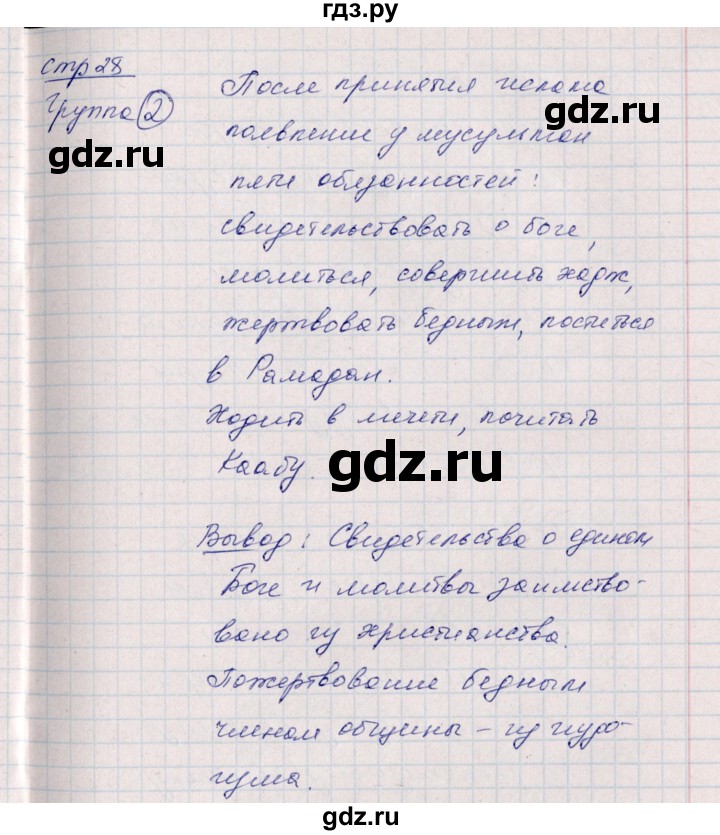 гдз.ру
стр 28
Группа 2
gdz.ru
После принятия ислама
gdz.ru
появление у мусульман
пяти обязанностей:
свидетельствовать о боге,
молиться, совершить хадж,
жертвовать бедным, поститься
в Рамадан.
Ходить в мечети, почитать
Каабу.
gdz.ru
Вывод: Свидетельства о едином
Боге и молитвы заимство-
вано из христианства.
Пожертвование бедным
членам общины – из иуда-
изма.
gdz.ru